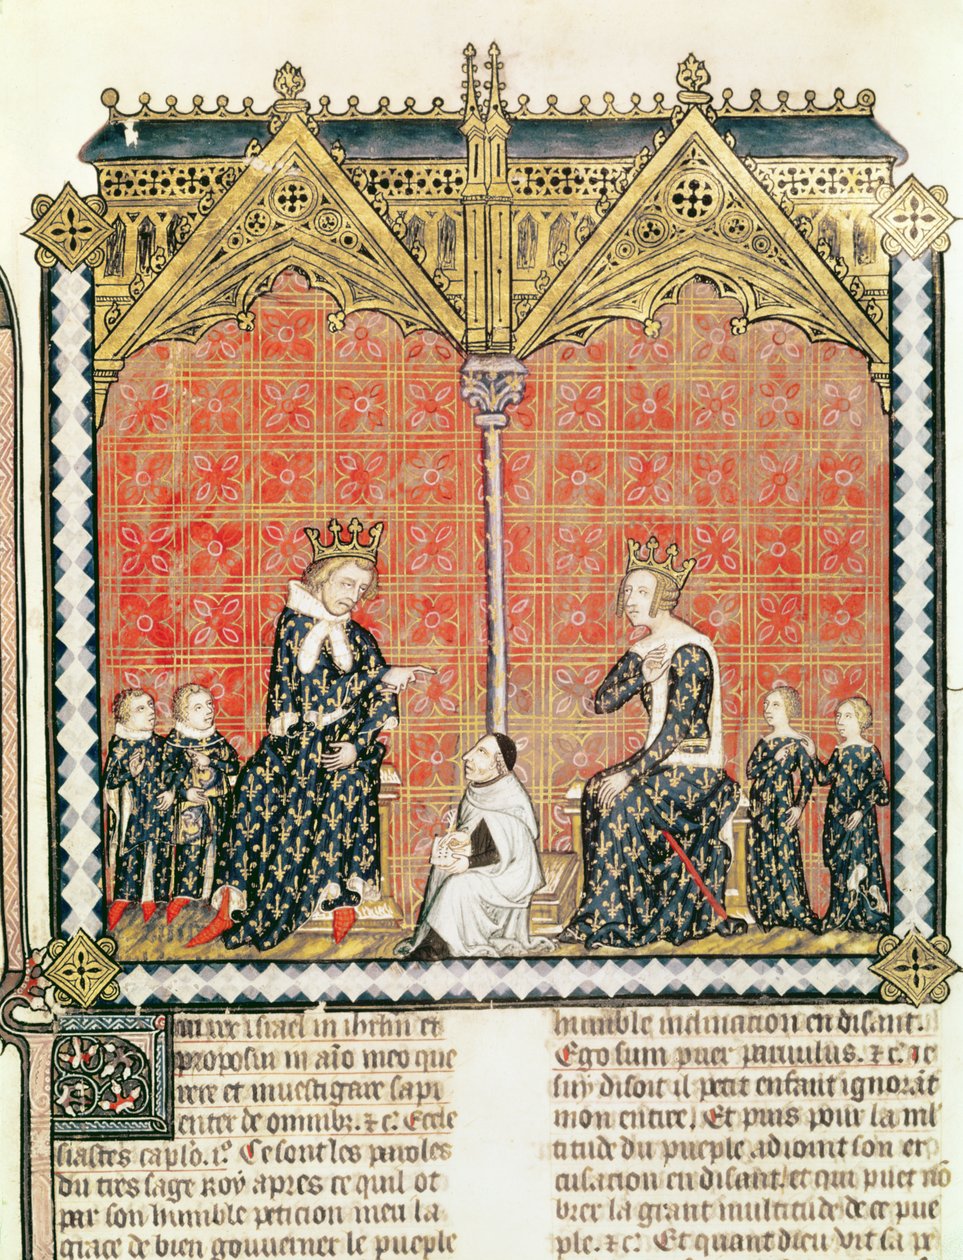 uit rex israel in ihrlm et
proposui in aīo meo que
rere et inuestigare sapi
enter de omnibꝫ. ⁊c̄. Eccle
siastes caplo. i.º Ce sont les paroles
du tres sage Roy apres ce quil ot
par son humble peticion meu la
grace de bien gouuerner le pueple
humble inclinacion en disant.
Ego sum puer paruulus. ⁊c̄. ie
suy disoit il petit enfant ignorāt
mon entree. Et puis pour la mĺ
titude du pueple adioint son ex
cusacion en disant. et qui puet nō
brer la grant multitude de ce pue
ple. ⁊c̄. Et quant dieu vit sa p